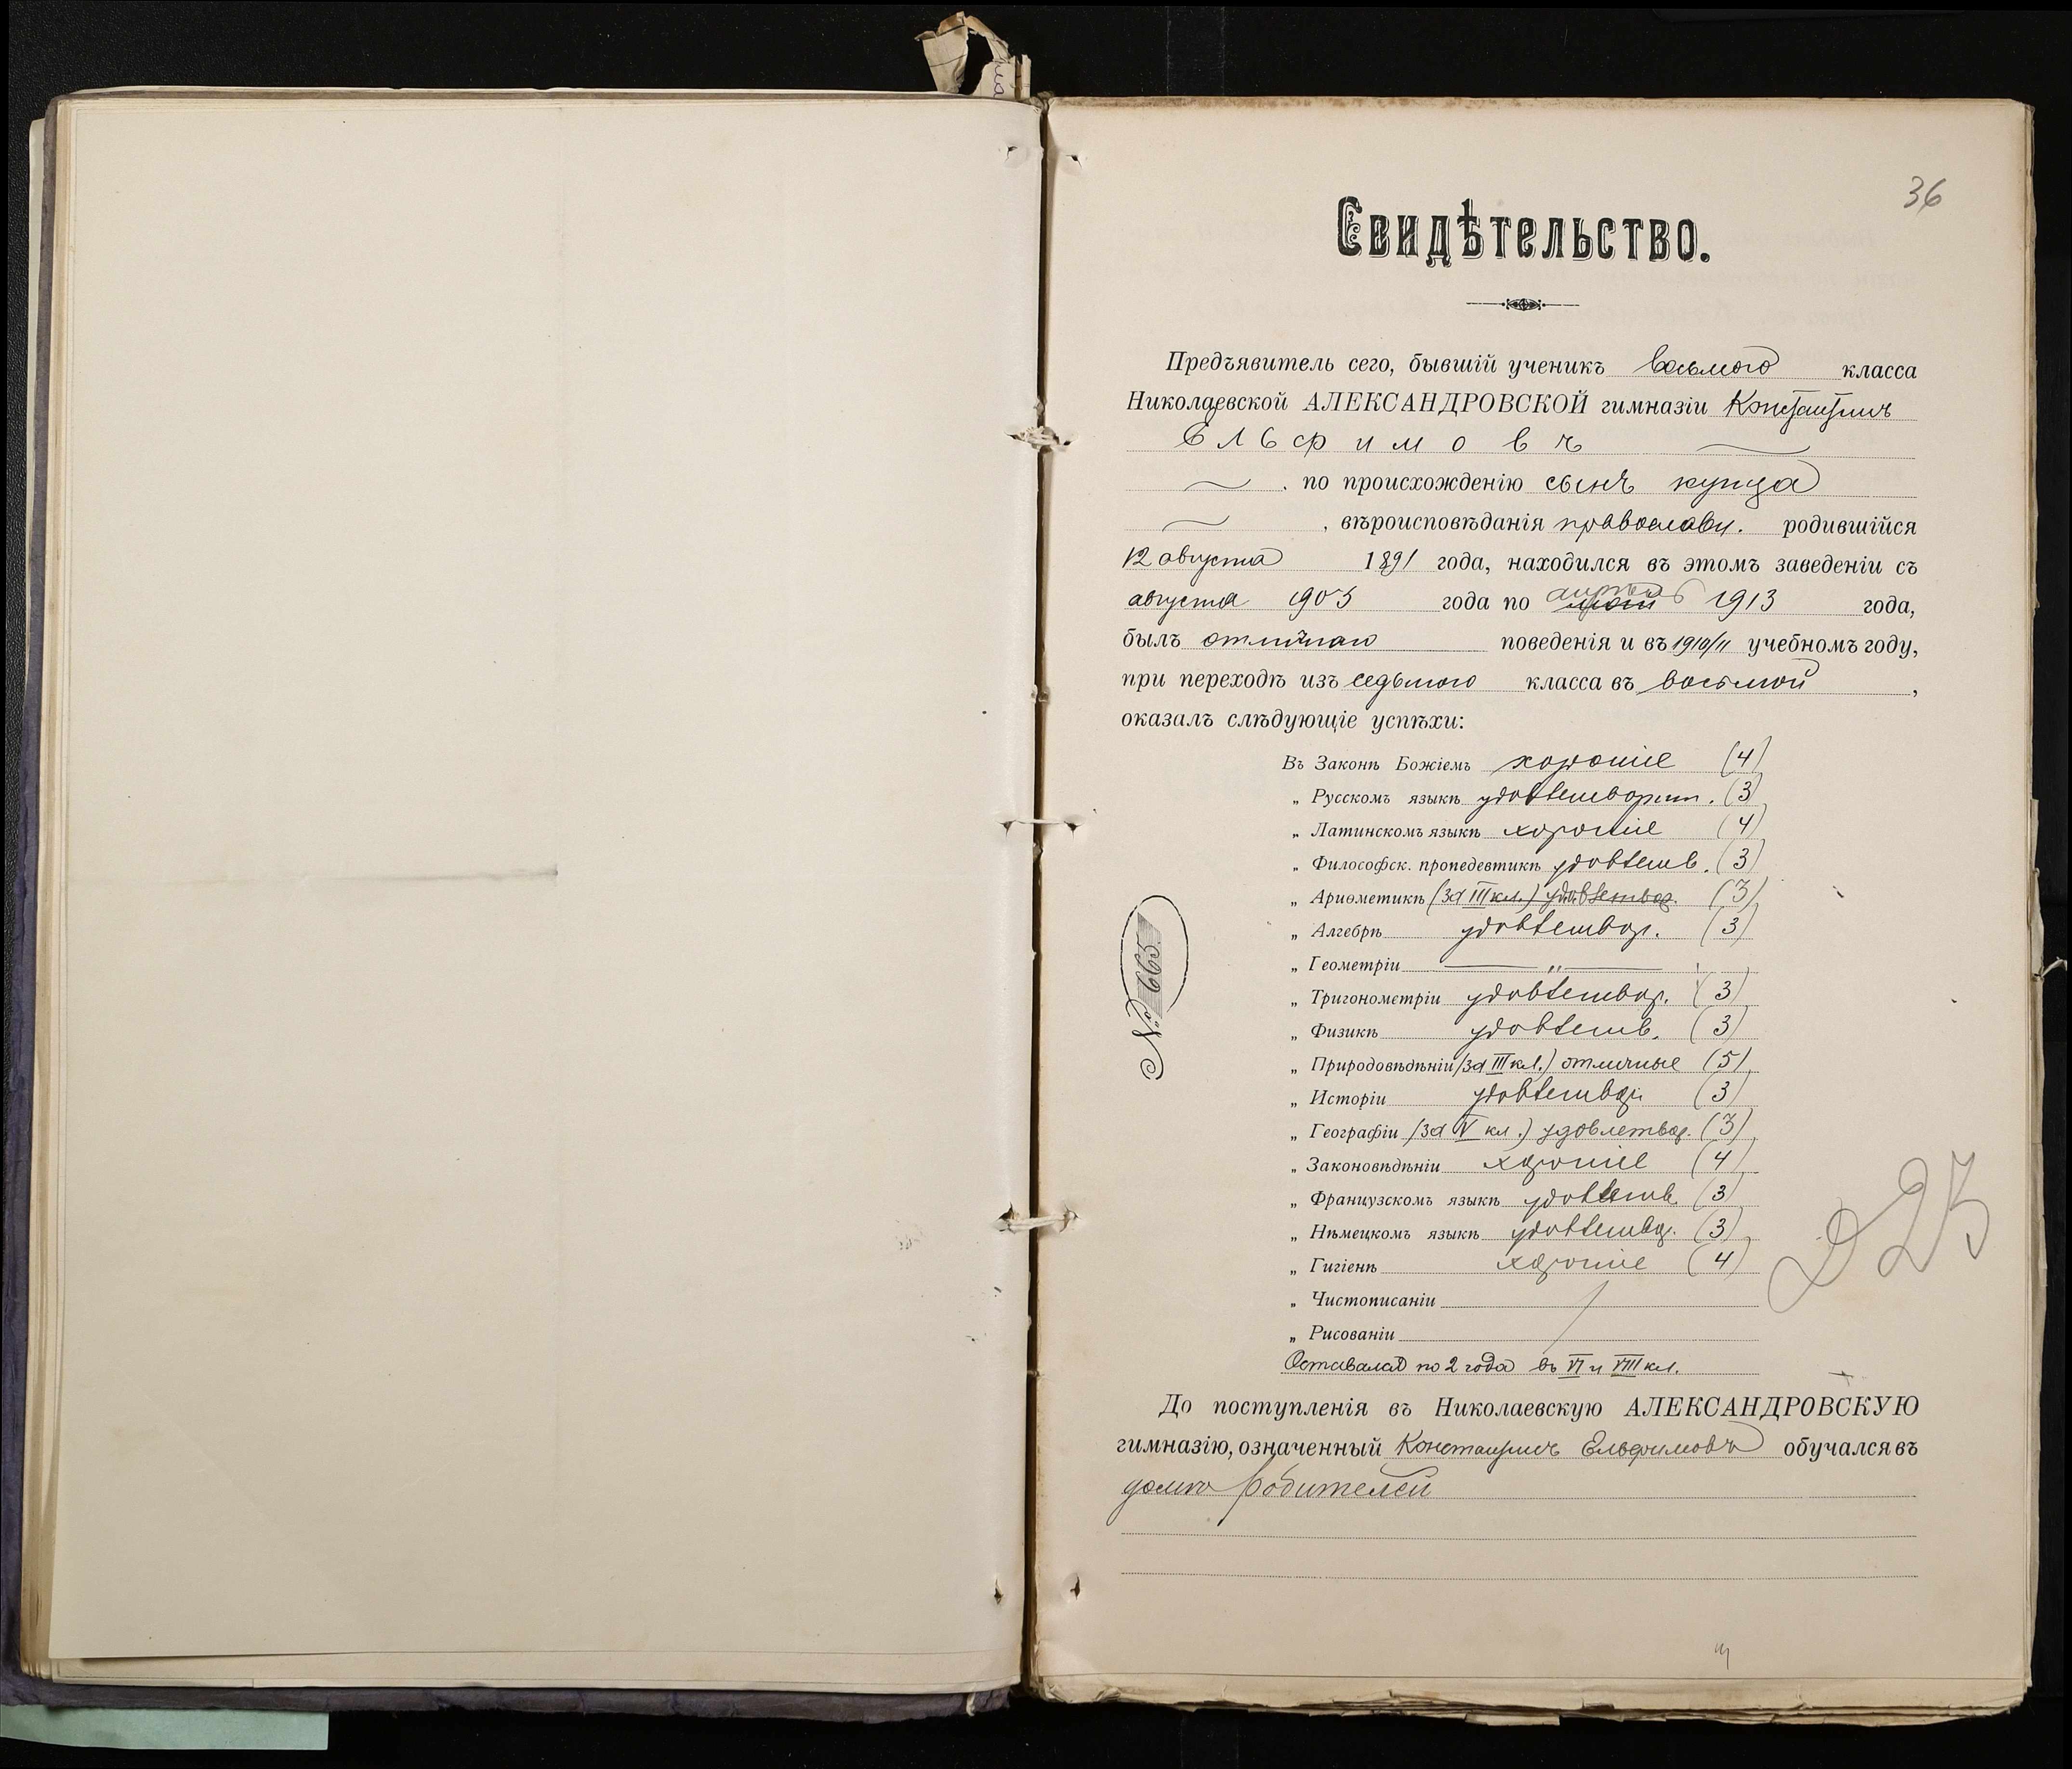 36
Свидѣтельство.
Предъявитель сего, бывшій ученикъ восьмого класса
Николаевской АЛЕКСАНДРОВСКОЙ гимназіи Константинъ
Ельфимовъ
по происхожденію сынъ купца
, вѣроисповѣданія православн. родившійся
12 августа 1891 года, находился въ этомъ заведеніи съ
августа 1903 года по апрѣль 1913 года,
былъ отличнаго поведенія и въ 1910/11 учебномъ году,
при переходѣ изъ седьмого класса въ восьмой ,
оказалъ слѣдующіе успѣхи:
Въ Законѣ Божіемъ хорошіе (4)
„ Русскомъ языкѣ удовлетворит. (3)
„ Латинскомъ языкѣ хорошіе (4)
„ Философск. пропедевтикѣ удовлетв. (3)
„ Ариѳметикѣ (за III кл.) удовлетвор. (3)
„ Алгебрѣ удовлетвор. (3)
„ Геометріи — „ —
„ Тригонометріи удовлетвор. (3)
„ Физикѣ удовлетв. (3)
„ Природовѣдѣніи (за III кл.) отличные (5)
„ Исторіи удовлетвор. (3)
„ Географіи (за V кл.) удовлетвор. (3)
„ Законовѣдѣніи хорошіе (4)
„ Французскомъ языкѣ удовлетв. (3)
„ Нѣмецкомъ языкѣ удовлетвор. (3)
„ Гигіенѣ хорошіе (4)
„ Чистописаніи
„ Рисованіи
Оставался по 2 года въ VI и VIII кл.
До поступленія въ Николаевскую АЛЕКСАНДРОВСКУЮ
гимназію, означенный Константинъ Ельфимовъ обучался въ
домѣ родителей
№ 665